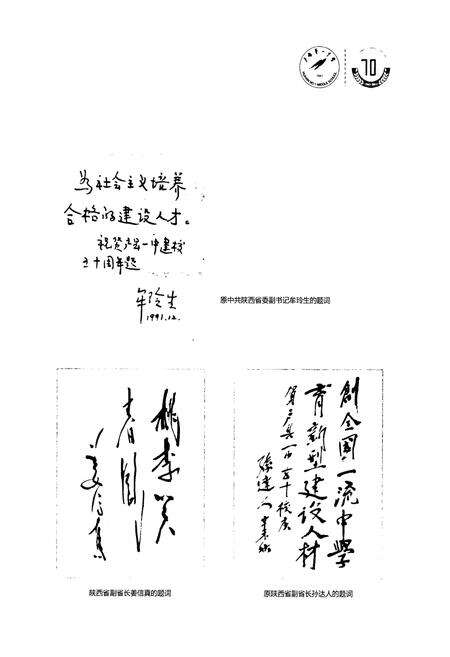 70
为社会主义培养
合格的建设人才。
祝贺户县一中建校
五十周年题
牟玲生
1991.12.
原中共陕西省委副书记牟玲生的题词
桃李芬
春园
姜信真
陕西省副省长姜信真的题词
創全國一流中學
育新型建设人材
贺户县一中五十校庆
孫達人
原陕西省副省长孙达人的题词